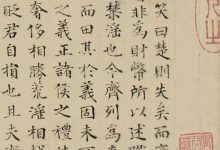 笑曰楚則失矣而齊
非為財幣所以述
禁淫也今齊列為
而田其於義固未
之義正諸侯之禮
奢侈相勝荒淫相
貶君自損也且夫